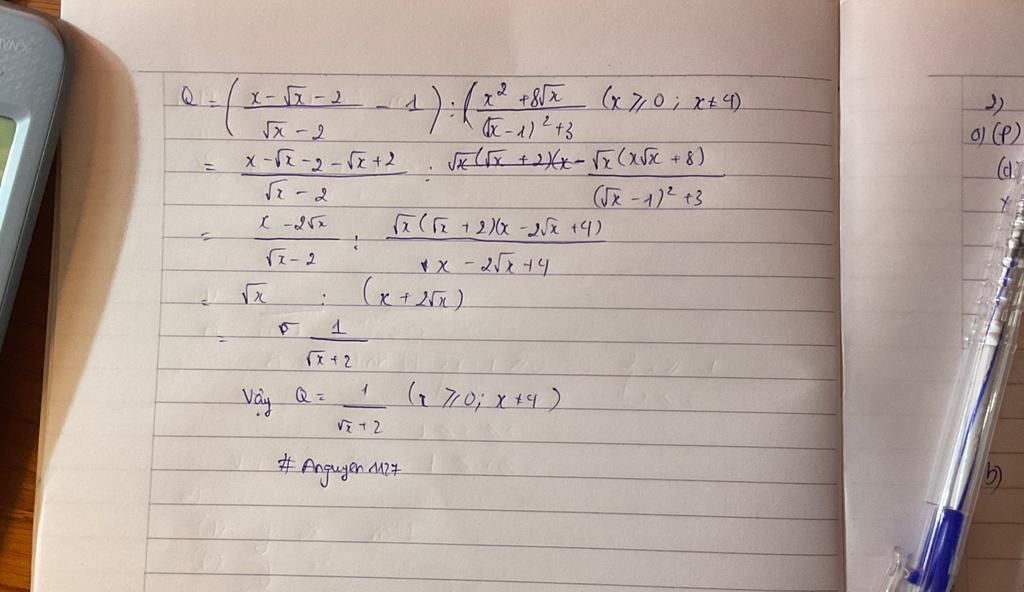 Q = ( (x - √x - 2)/(√x - 2) - 1 ) : ( (x² + 8√x)/((√x - 1)² + 3) (x ⩾ 0 ; x ≠ 4)
= (x - √x - 2 - √x + 2)/(√x - 2) : √x(√x + 2)(x - √x(x√x + 8)/((√x - 1)² + 3)
= (x - 2√x)/(√x - 2) : √x(√x + 2)(x - 2√x + 4)/(x - 2√x + 4)
= √x : (x + 2√x)
= 1/(√x + 2)
Vậy Q = 1/(√x + 2) (x ⩾ 0 ; x ≠ 4)
# Anguyen1127
2)
a) (P)
(d)
b)